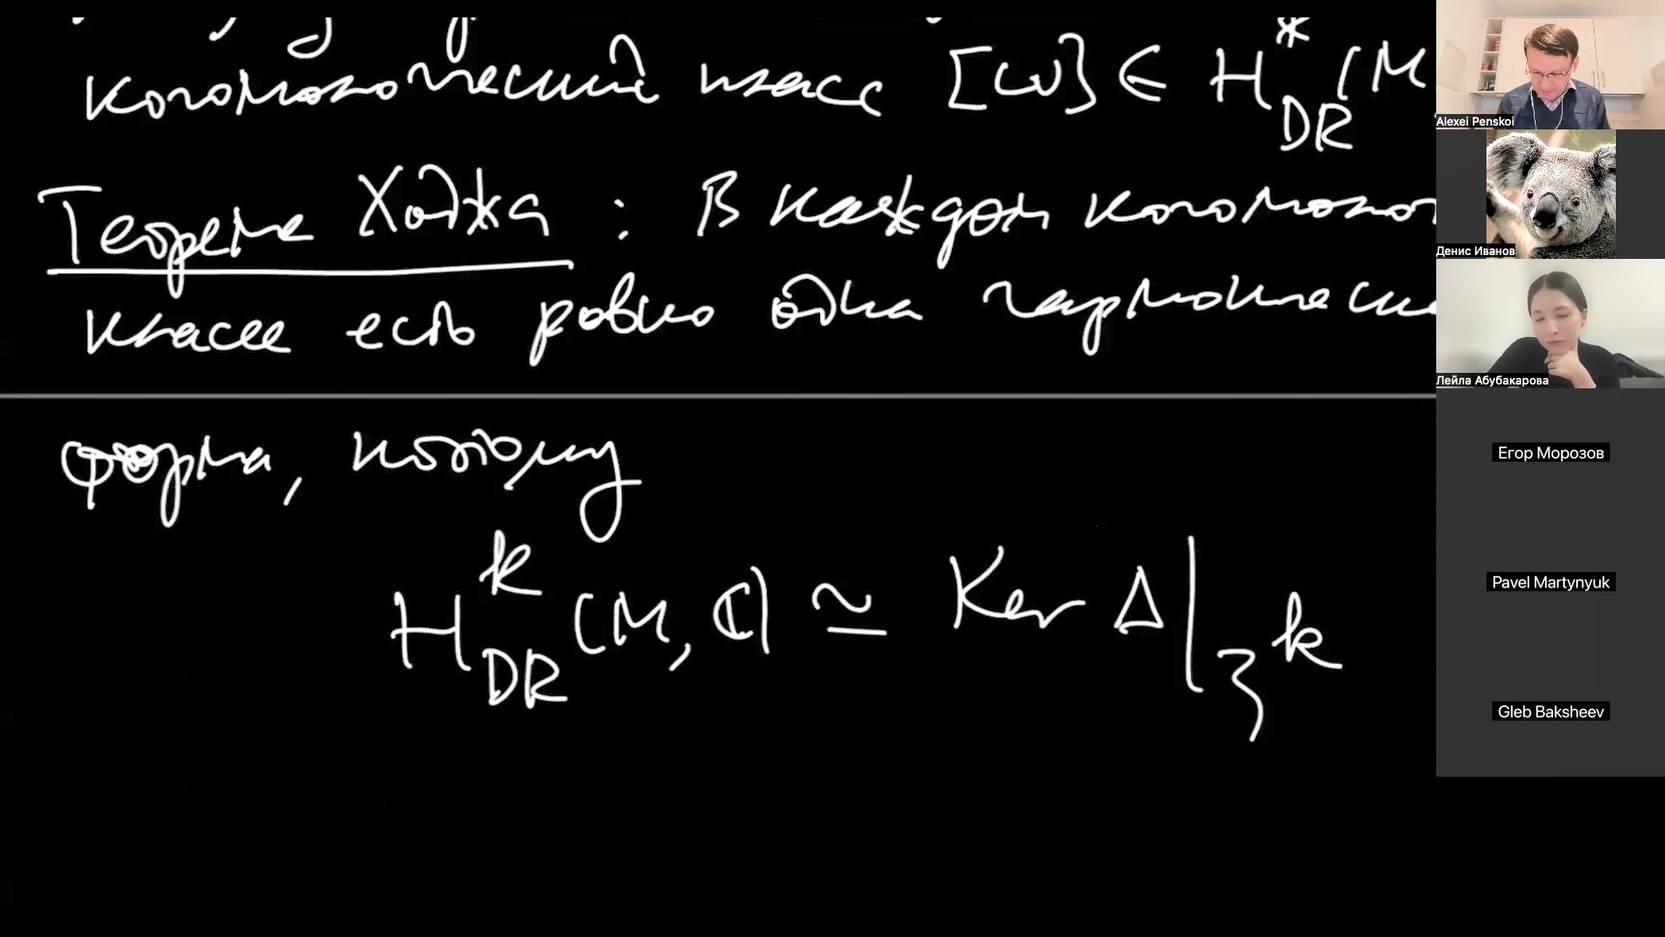 когомологический класс [ω] ∈ H*_DR (M
Теорема Ходжа : В каждом когомолог
классе есть ровно одна гармоничес
форма, потому
H^k_DR (M, ℂ) ≃ Ker Δ|_3^k
Alexei Penskoi
Денис Иванов
Лейла Абубакарова
Егор Морозов
Pavel Martynyuk
Gleb Baksheev